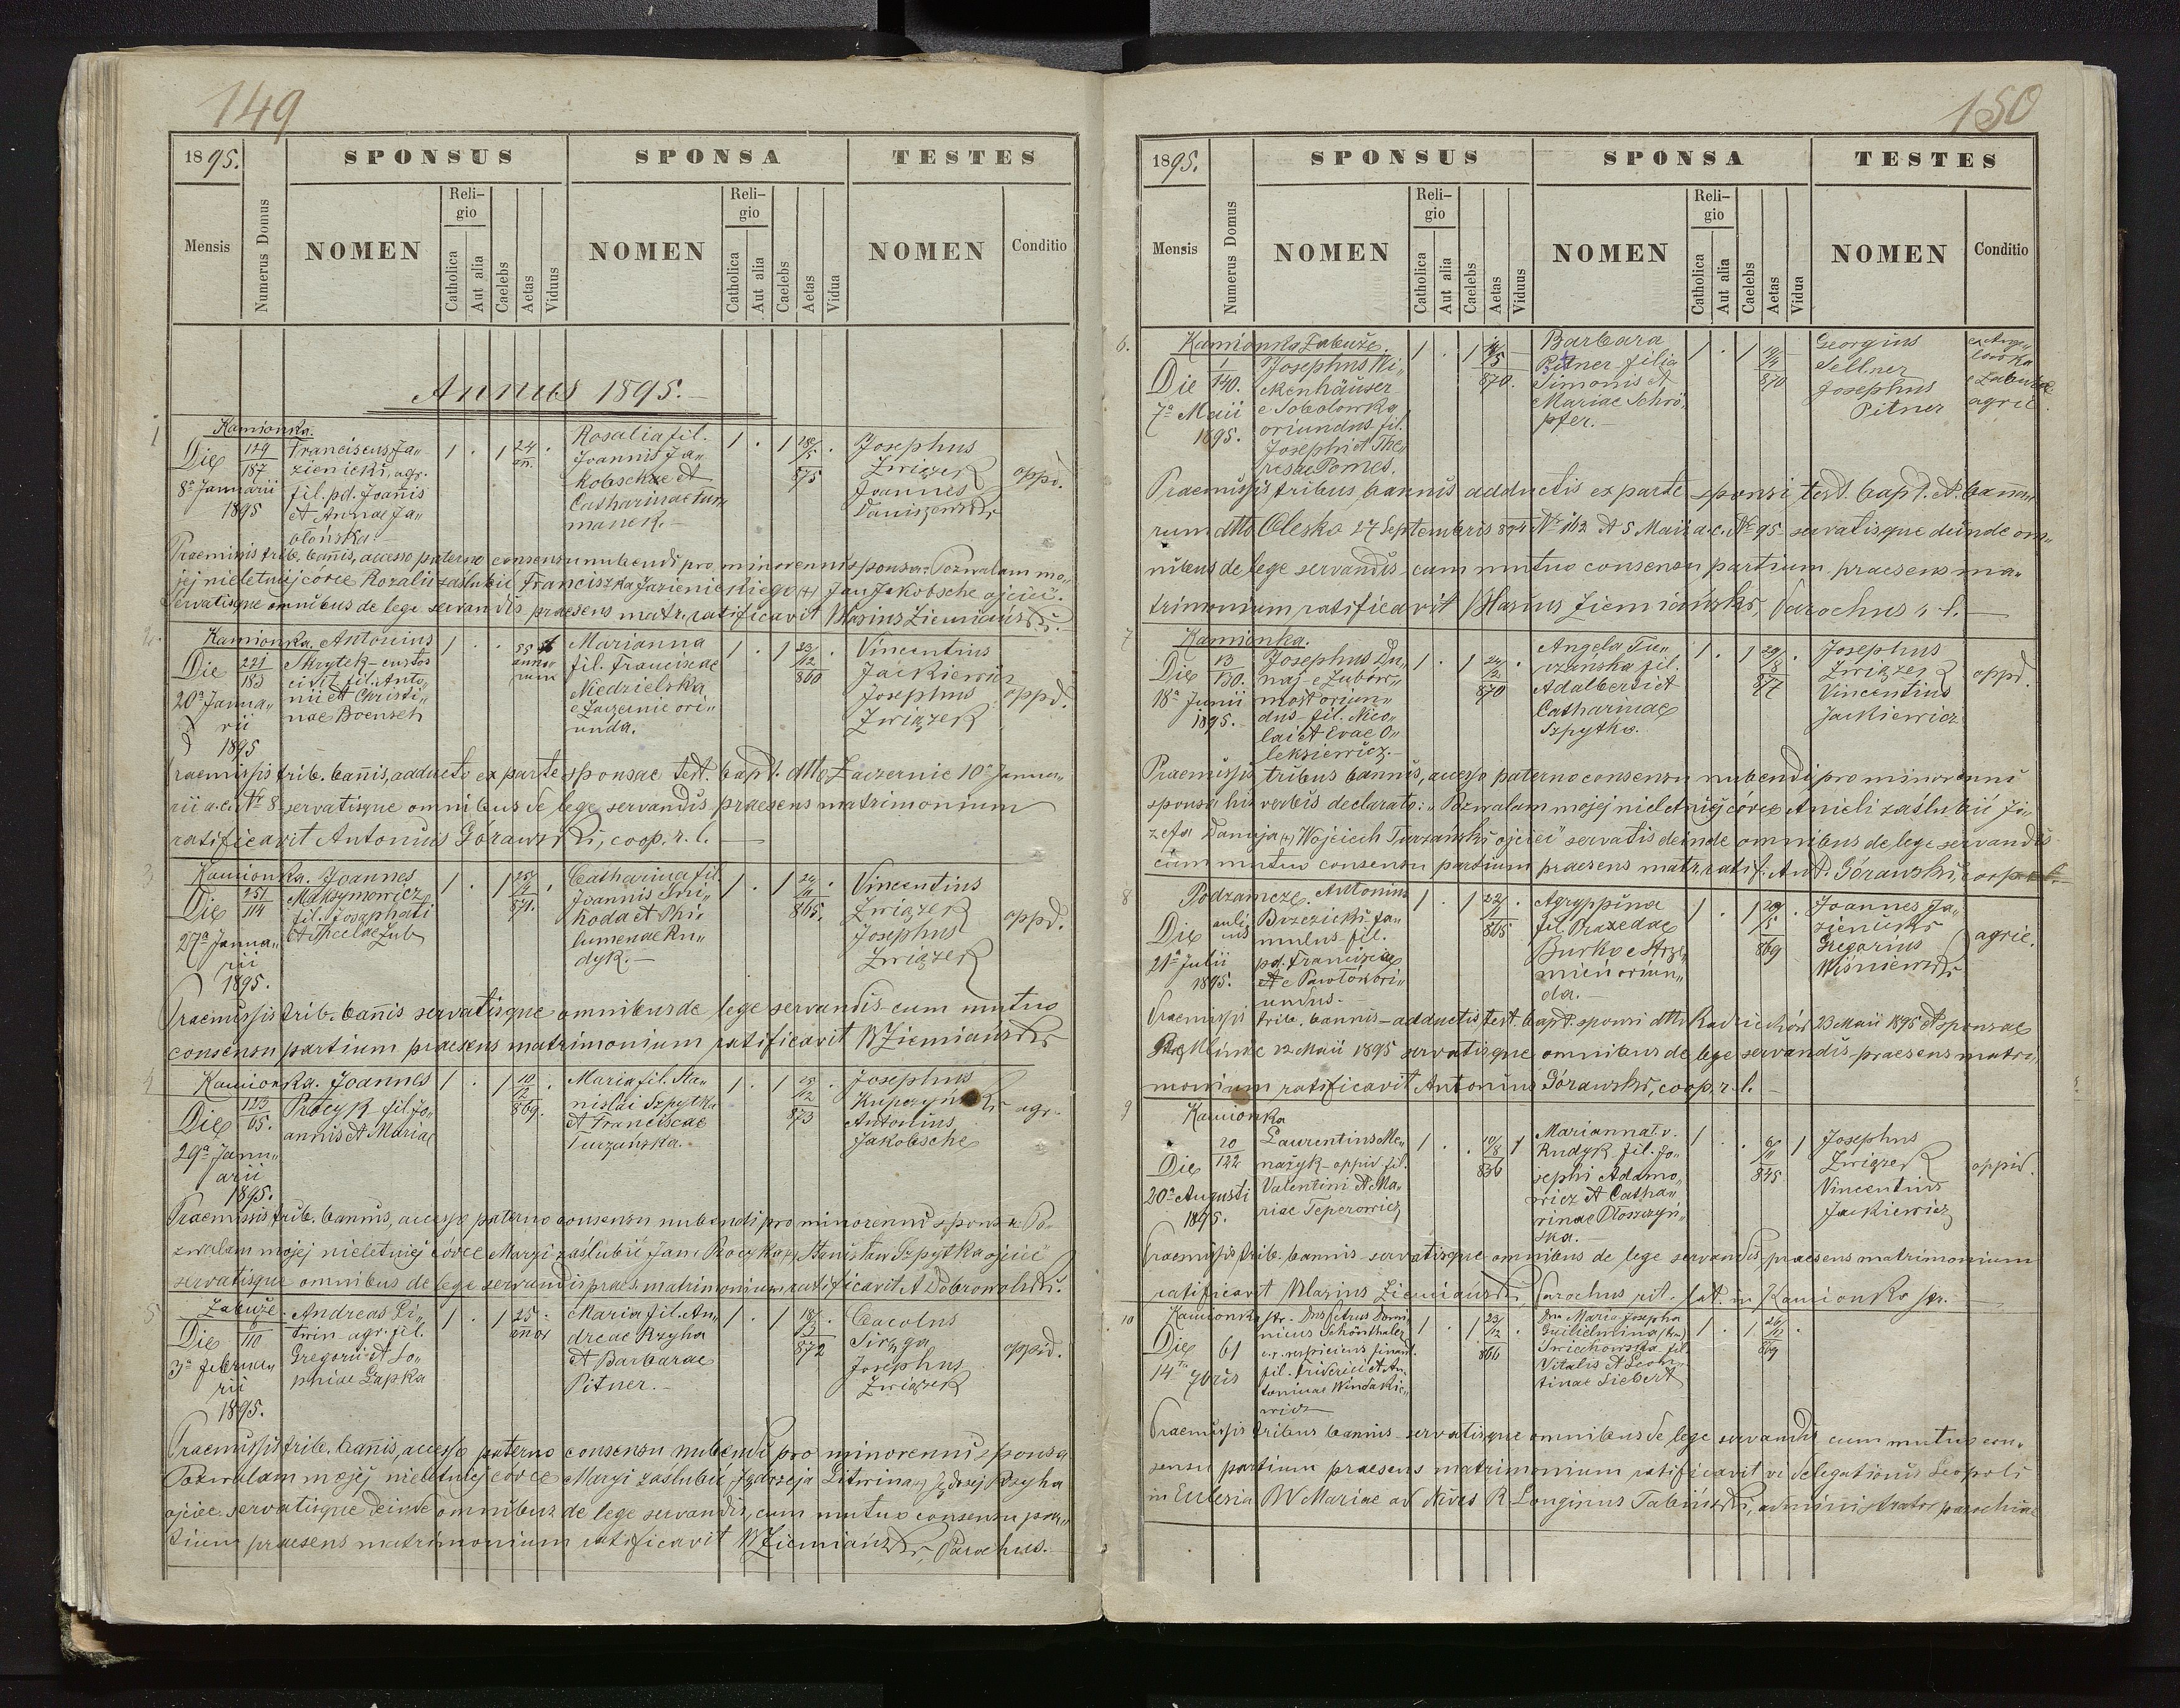 149
1895.
SPONSUS
SPONSA
TESTES
Mensis
Numerus Domus
NOMEN
Religio
Catholica
Aut alia
Caelebs
Aetas
Viduus
NOMEN
Religio
Catholica
Aut alia
Caelebs
Aetas
Vidua
NOMEN
Conditio
Annus 1895.—
1
Kamionka.
Die 8ª Januarii 1895
129/187
Franciscus Ja„
zienicki, agr.
fil. pd. Joañis
et Annae Ja„
błońska
1 . 1 24 an. .
Rosalia fil.
Joannis Ja„
kobsche et
Catharinae Fur„
manek.—
1 . 1 28/5 875 .
Josephus
Związek
Joannes
Daniszewski
oppd.
Praemissis trib. bañis, accesso paterno consensu nubendi pro minorenni sponsa: Pozwalam mo„
jej nieletniej córce Rozalii zaślubić Franciszka Jazienickiego (+) Jan Jakobsche ojciec.
Servatisque omnibus de lege servandis praesens matr. ratificavit Marius Ziemiański.
2.
Kamionka.
Die 20ª Janua„
rii
1895
221/183
Antonius
Skrytek - custos
civit. fil. Anto„
nii et Christi„
nae Boensch
1 . . 55 annorum 1
Marianna
fil. Franciscae
Niedzielska
e Laczernie ori„
unda.
1 . 1 23/12 860 .
Vincentius
Jackiewicz
Josephus
Związek
oppd.
Praemissis trib. bañis, adducto ex parte sponsae test. bapt. dtto Laczernie 10ª Janua„
rii a.c. Nr 8 servatisque omnibus de lege servandis praesens matrimonium
ratificavit Antonius Górawski, coop. r. l.
3
Kamionka.
Die 27ª Janua„
rii
1895.
251/114
Joannes
Maksymowicz
fil. Josaphati
et Theclae Zub
1 . 1 25/4 871. .
Catharina fil.
Joannis Shi„
koda et Phi„
lumenae Ru„
dyk.—
1 . 1 24/11 865. .
Vincentius
Związek
Josephus
Związek
oppd.
Praemissis trib. bañis servatisque omnibus de lege servandis cum mutuo
consensu partium praesens matrimonium ratificavit M Ziemiański
4
Kamionka.
Die 29ª Janu„
arii
1895.
123/65.
Joannes
Procyk - fil. Jo„
annis et Mariae
1 . 1 10/12 869. .
Maria fil. Sta„
nislai Szpytka
et Franciscae
Turzańska.
1 . 1 25/12 873 .
Josephus
Kupczyński
Antonius
Jakobsche
agr.
Praemissis trib. bannis, accesso paterno consensu nubendi pro minorenni sponsa Po„
zwalam mojej nieletniej córce Maryi zaślubić Jana Procyka (+) Stanisław Szpytka ojciec
servatisque omnibus de lege servandis praes. matrimonium ratificavit A Dobrowolski.
5
Zabuże.
Die 3ª Februa„
rii
1895.
6/110
Andreas Li„
twin - agr. fil.
Gregorii et So„
phiae Łapka
1 . 1 25 años .
Maria fil. An„
dreae Rzyha
et Barbarae
Pitner.—
1 . 1 18/12 872 .
Carolus
Sirzęga
Josephus
Związek
oppid.
Praemissis trib. bañis, accesso paterno consensu nubendi pro minorenni sponsa
Pozwalam mojej nieletniej córce Maryi zaślubić Jędrzeja Litwina (+) Jędrzej Rzyha
ojciec. servatisque deinde omnibus de lege servandis, cum mutuo consensu par„
tium praesens matrimonium ratificavit M Ziemiański, Parochus.
150
1895.
SPONSUS
SPONSA
TESTES
Mensis
Numerus Domus
NOMEN
Religio
Catholica
Aut alia
Caelebs
Aetas
Viduus
NOMEN
Religio
Catholica
Aut alia
Caelebs
Aetas
Vidua
NOMEN
Conditio
6.
Kamionka Zabuże.
Die 7ª Maii
1895.
1/140.
Josephus Ri„
ckenhäuser
e Sobolowka
oriundus fil.
Josephi et The„
resae Pomes.
1 . 1 14/5 870. —
Barbara
Pitner filia
Simonis et
Mariae Schrö„
pfer.—
1 . 1 19/4 870 —
Georgius
Sellner
Josephus
Pitner
e Zabuże
agric.
Praemissis tribus bannis adductis ex parte sponsi test. bapt. et banno„
rum dtto Olesko 27 Septembris 894 Nr 162 et 5 Maii a.c. Nr 95 - servatisque deinde om„
nibus de lege servandis cum mutuo consensu partium praesens ma„
trimonium ratificavit Marius Ziemiański, Parochus r. l.
7
Kamionka.
Die 18ª Junii
1895.
13/130.
Josephus Du„
naj - e Zubów„
most oriun„
dus - fil. Nico„
lai et Evae O„
leksiewicz.—
1 . 1 24/2 870 .
Angela Tu„
rzańska fil.
Adalberti et
Catharinae
Szpytko.
1 . 1 29/8 877 .
Josephus
Związek
Vincentius
Jackiewicz
oppd.
Praemissis tribus bannis, accesso paterno consensu nubendi pro minorenni
sponsa his verbis declarato: „Pozwalam mojej nieletniej córce Anieli zaślubić Jó„
zefa Dunaja (+) Wojciech Turzański ojciec" servatis deinde omnibus de lege servandis
cum mutuo consensu partium praesens matr. ratif. Ant. Górawski, coop. r. l.
8
Podzamcze.
Die 21ª Julii
1895.
Antonius
Brzezicki - fa„
mulus - fil.
pd. Franciscae
et e Pawłów ori„
undus.—
1 . 1 22/1 865 .
Agryppina
fil. Praxedae
Burko e Strze„
mień oriun„
da.—
1 . 1 29/5 869 .
Joannes Ja„
zienicki
Gregorius
Wiśniewski
agric.
Praemissis trib. bannis - adductis test. bapt. sponsi dtto Radziechów 23 Maii 1895 et sponsae
22 Maii 1895 servatisque omnibus de lege servandis praesens matri„
monium ratificavit Antonius Górawski, coop. r. l.—
9
Kamionka
Die 20ª Augusti
1895.
20/122
Laurentius Me„
nażyk - oppid. fil.
Valentini et Ma„
riae Teperowicz
1 . . 10/8 836 1
Marianna 1. v.
Rudyk fil. Jo„
sephi Adamo„
wicz et Catha„
rinae Płoszczyń„
ska.—
1 . . 6/11 845 1
Josephus
Związek
Vincentius
Jackiewicz
oppid.
Praemissis trib. bannis - servatisque omnibus de lege servandis praesens matrimonium
ratificavit Marius Ziemiański, Parochus rit. lat. in Kamionka str.
10
Kamionka str.
Die 14ª 7bris
61
Dns Petrus Domi„
nicus Schönthaler
c.r. respiciens finant.
fil. Friderici et An„
toninae Windakie„
wicz
1 . 1 23/12 866 .
Dna Maria Josepha
Guilielmina (tri.)
Świechowska fil.
Vitalis et Leon„
tinae Liebert
1 . 1 26/12 869 .
Praemissis tribus bannis servatisque omnibus de lege servandis cum mutuo con„
sensu partium praesens matrimonium ratificavit vi delegationis Leopoli
in Ecclesia BV Mariae ad Nives R Longinus Tabiński, administrator parochiae